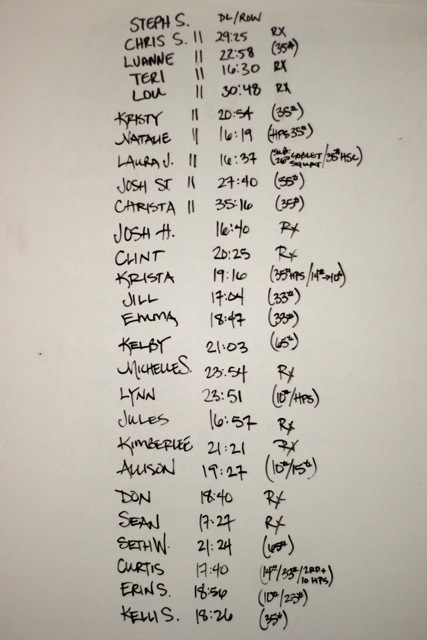 STEPH S. DL/ROW
CHRIS S. || 29:25 RX
LUANNE || 22:58 (35#)
TERI || 16:30 RX
LOU || 30:48 RX
KRISTY || 20:54 (35#)
NATALIE || 16:19 (HPS 35#)
LAURA J. || 16:37 (SUB: 26# GOBLET SQUAT/35# HSC)
JOSH ST || 27:40 (55#)
CHRISTA || 35:16 (35#)
JOSH H. 16:40 RX
CLINT 20:25 RX
KRISTA 19:16 (35# HPS/14#→10#)
JILL 17:04 (33#)
EMMA 18:47 (33#)
KELBY 21:03 (65#)
MICHELLE S. 23:54 RX
LYNN 23:51 (10#/HPS)
JULES 16:57 RX
KIMBERLEE 21:21 RX
ALLISON 19:27 (10#/15#)
DON 18:40 RX
SEAN 17:27 RX
SETH W. 21:24 (65#)
CURTIS 17:40 (14#/35#/2RD+ 10 HPS)
ERIN S. 18:56 (10#/25#)
KELLI S. 18:26 (35#)